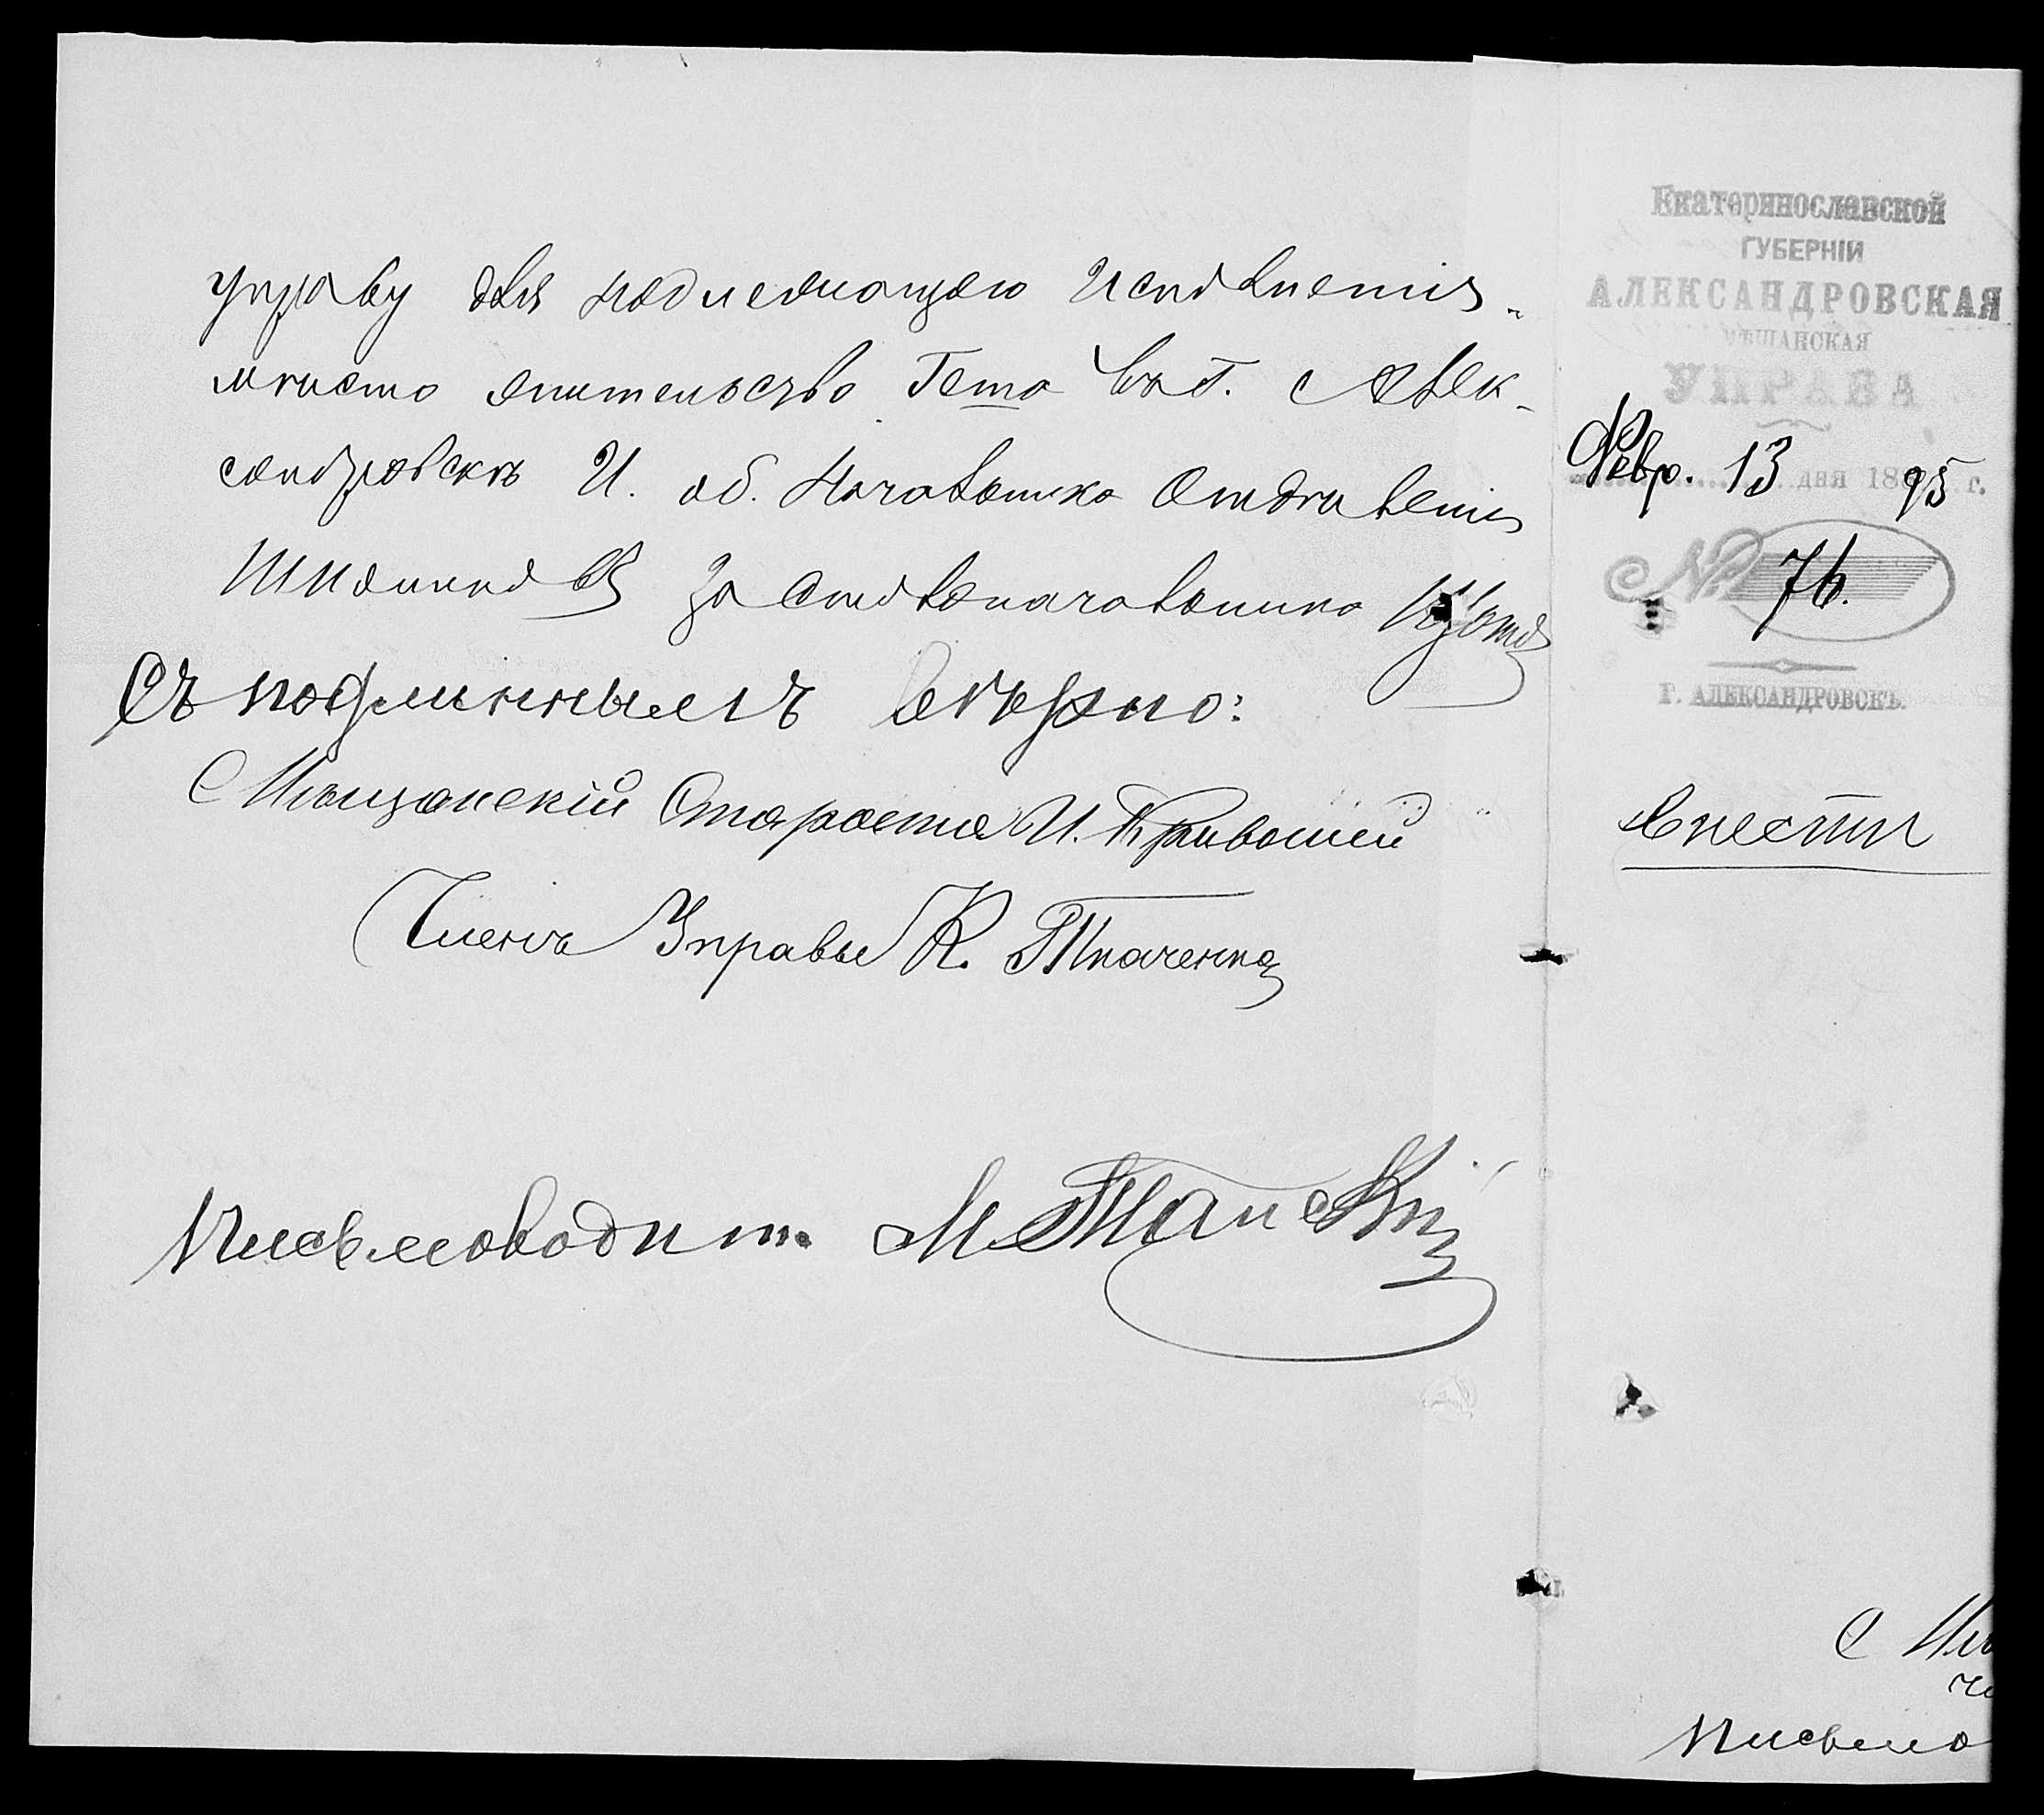 управу для надлежащаго Исполненія.
мѣсто жительство Гето въ Г. Алек-
сандровскѣ И. об. Начальника Отдѣленія
За Столоначальника
Съ подлиннымъ вѣрно:
Мѣщанскій Староста И. Кривошей
Членъ Управы К. Ткаченко
Письмоводит. М
Екатеринославской
ГУБЕРНІИ
АЛЕКСАНДРОВСКАЯ
МѢЩАНСКАЯ
УПРАВА
Февр. 13 дня 1895 г.
№ 76.
Г. АЛЕКСАНДРОВСКЪ.
Внести
Письмо